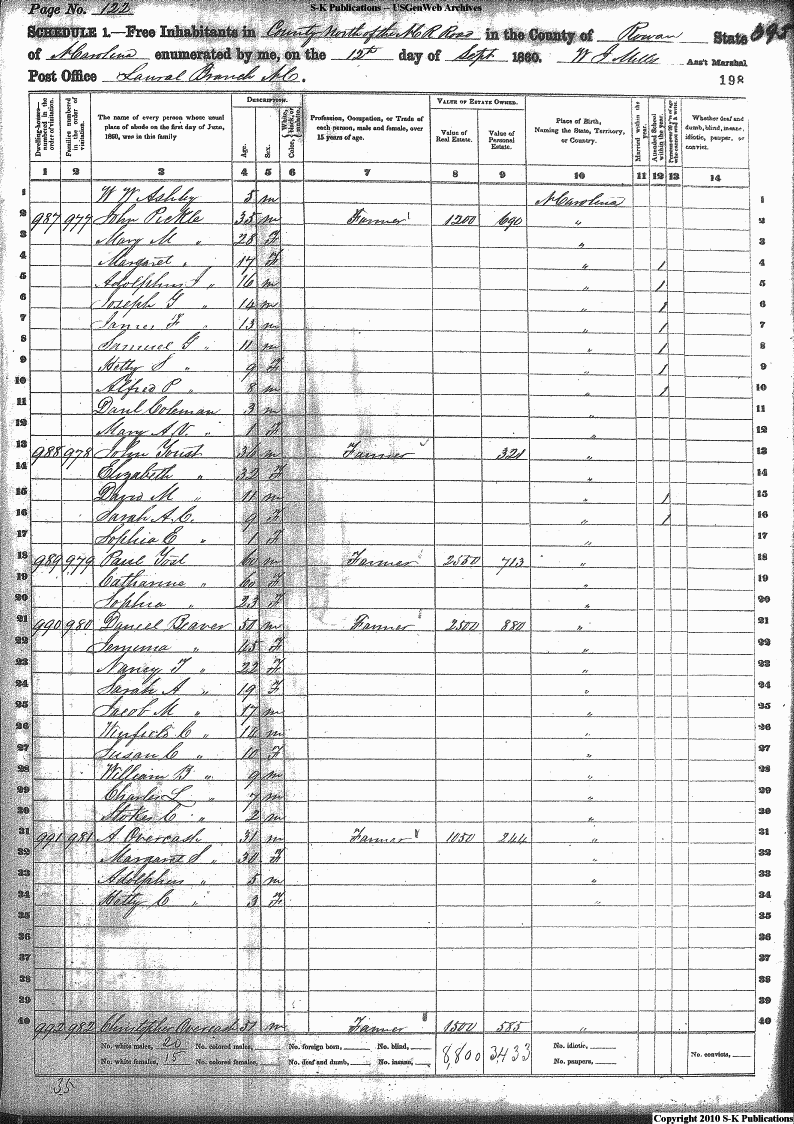 S-K Publications – USGenWeb Archives
Page No. 122
SCHEDULE 1.—Free Inhabitants in County North of the N C R Road in the County of Rowan State 395
of N Carolina enumerated by me, on the 12th day of Sept 1860. W J Mills Ass't Marshal
Post Office Laural Branch N C. 198
Dwelling-houses— numbered in the order of visitation. Families numbered in the order of visitation. The name of every person whose usual place of abode on the first day of June, 1860, was in this family DESCRIPTION. Age. Sex. Color, White, black, or mulatto. Profession, Occupation, or Trade of each person, male and female, over 15 years of age. VALUE OF ESTATE OWNED. Value of Real Estate. Value of Personal Estate. Place of Birth, Naming the State, Territory, or Country. Married within the year. Attended School within the year. Whether deaf and dumb, blind, insane, idiotic, pauper, or convict.
1 2 3 4 5 6 7 8 9 10 11 12 13 14
1 W W Ashby 5 m N Carolina 1
2 987 977 John Pickle 35 m Farmer 1200 690 " 2
3 Mary M " 28 F " 3
4 Margaret " 17 F " 1 4
5 Adolphus J " 16 m " 1 5
6 Joseph G " 14 m " 1 6
7 James F " 13 m " 1 7
8 Samuel G " 11 m " 1 8
9 Hetty S " 9 F " 1 9
10 Alfred P " 8 m " 1 10
11 Danl Coleman 3 m " 11
12 Mary A. V. " 1 F " 12
13 988 978 John Yoist 36 m Farmer 321 " 13
14 Elizabeth " 32 F " 14
15 David M " 11 m " 1 15
16 Sarah A. C. 9 F " 1 16
17 Sophia E " 1 F " 17
18 989 979 Paul Yost 60 m Farmer 2550 713 " 18
19 Catharine " 60 F " 19
20 Sophia " 23 F " 20
21 990 980 Daniel Beaver 50 m Farmer 2500 880 " 21
22 Jemima " 45 F " 22
23 Nancy T " 22 F " 23
24 Sarah A " 19 F " 24
25 Jacob M " 17 m " 25
26 Winfield C " 12 m " 26
27 Susan C " 10 F " 27
28 William B " 9 m " 28
29 Charles L " 7 m " 29
30 Stokes C " 2 m " 30
31 991 981 A Overcash 31 m Farmer 1050 244 " 31
32 Margaret S " 30 F " 32
33 Adolphus " 5 m " 33
34 Hetty C " 3 F " 34
35 35
36 36
37 37
38 38
39 39
40 992 982 Christopher Overcash 51 m Farmer 1500 585 " 40
No. white males, 20 No. colored males, No. foreign born, No. blind, 8,800 3433 No. idiotic,
No. white females, 15 No. colored females, No. deaf and dumb, No. insane, No. paupers, No. convicts,
35
Copyright 2010 S-K Publications